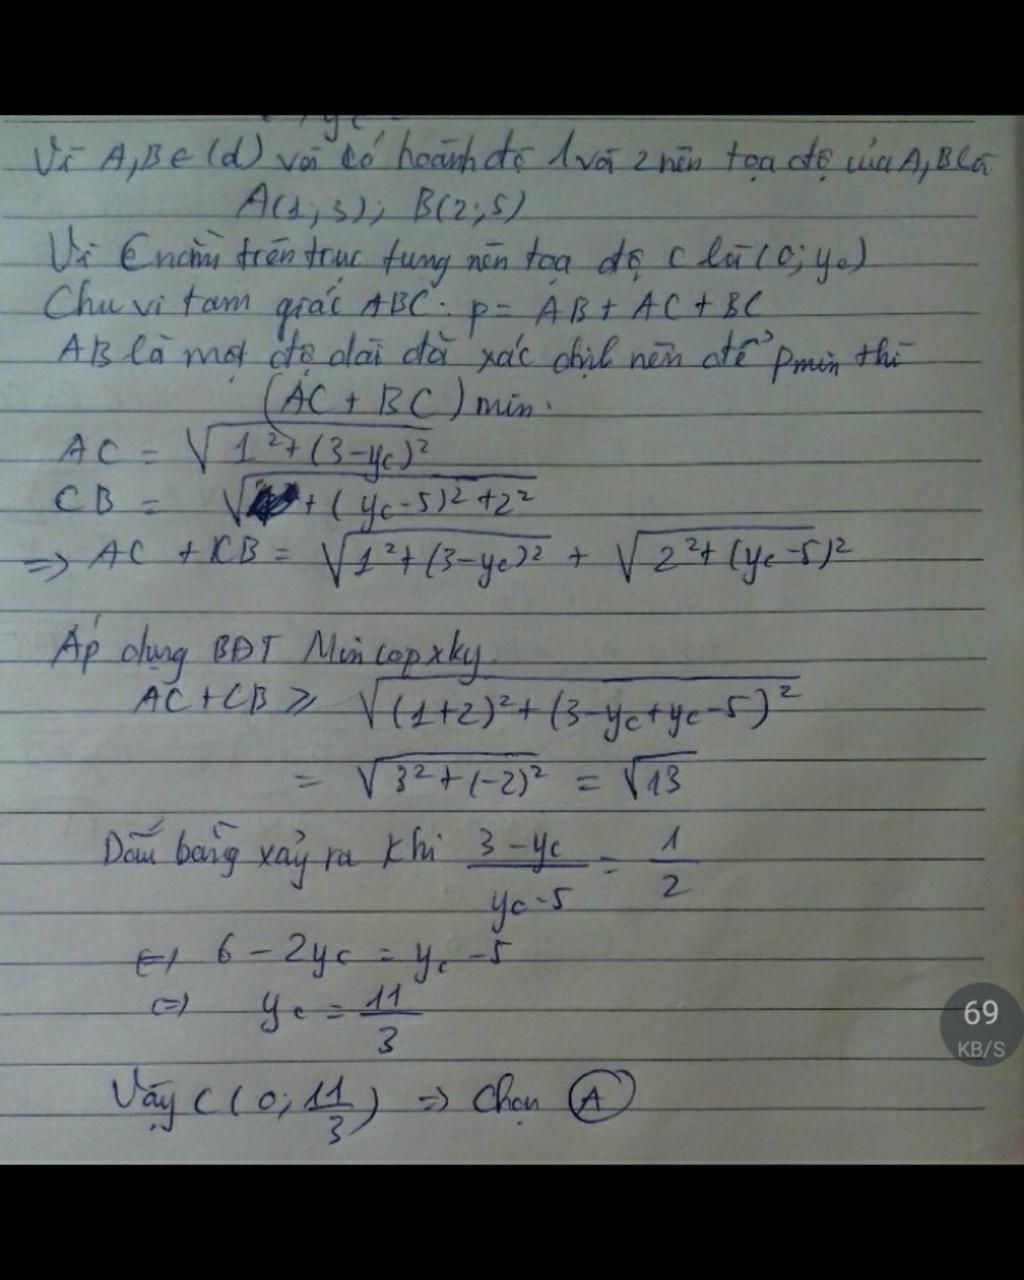 Vì A,B∈(d) và có hoành độ 1 và 2 nên tọa độ của A,B là
A(1;3); B(2;5)
Vì C nằm trên trục tung nên tọa độ C là (0; yc)
Chu vi tam giác ABC: p = AB + AC + BC
AB là một độ dài đã xác định nên để pmin thì
(AC + BC) min.
AC = √(1² + (3-yc)²)
CB = √( + (yc-5)² + 2²)
=> AC + CB = √(1² + (3-yc)²) + √(2² + (yc-5)²)
Áp dụng BĐT Mincopxky
AC + CB ≥ √((1+2)² + (3-yc+yc-5)²)
= √(3² + (-2)²) = √13
Dấu bằng xảy ra khi (3-yc)/(yc-5) = 1/2
<=> 6 - 2yc = yc - 5
<=> yc = 11/3
Vậy C(0; 11/3) => Chọn A
69
KB/S